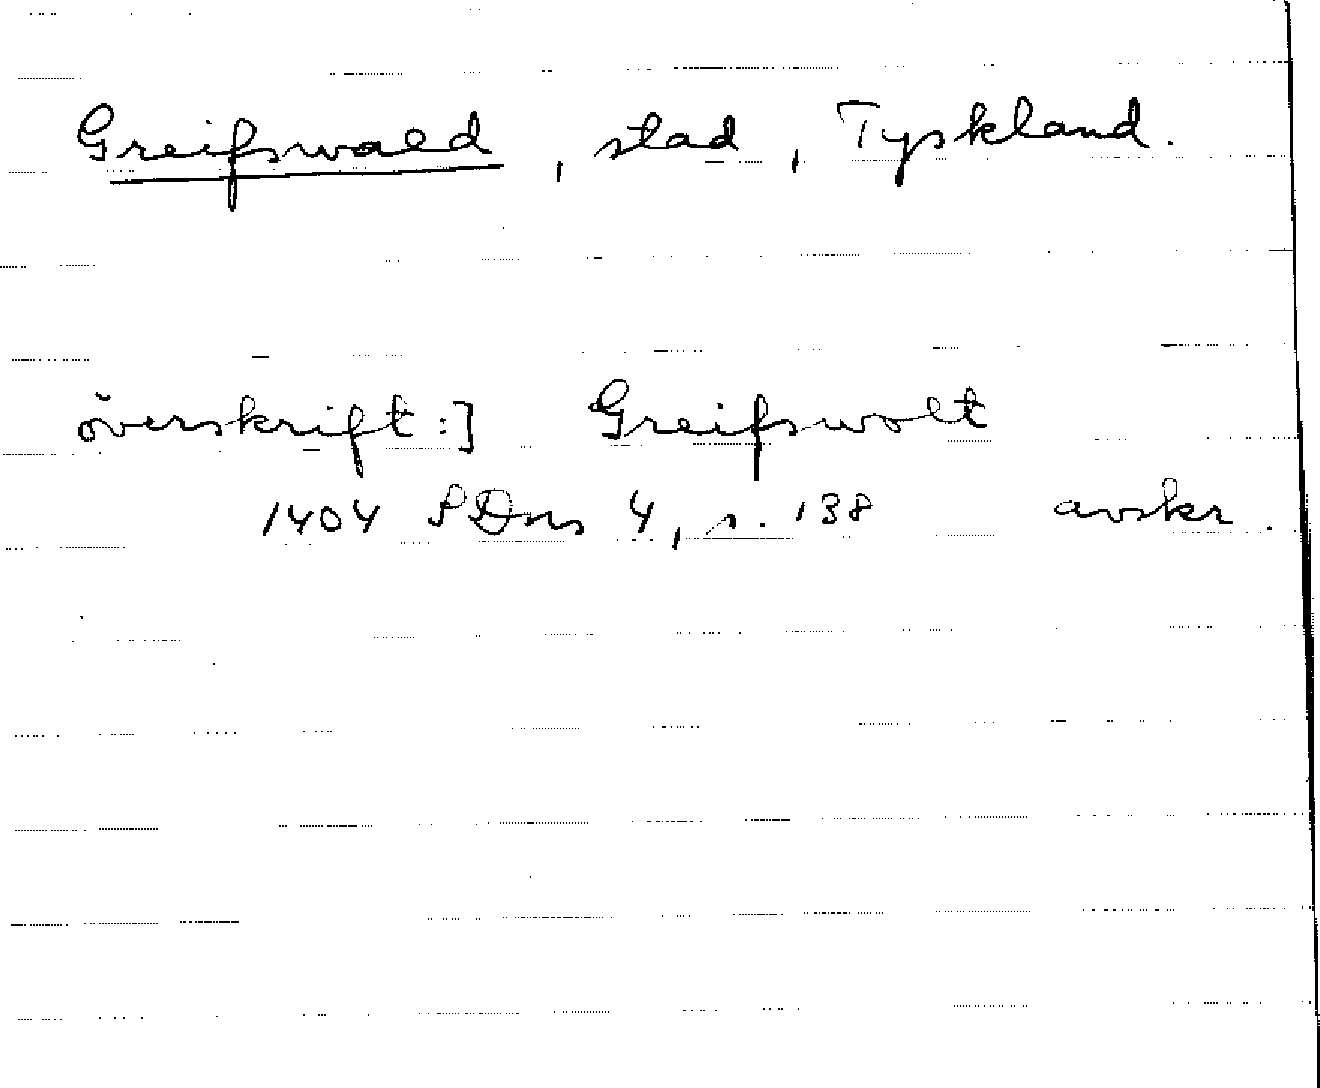 Greifswald, stad, Tyskland.
överskrift:] Greifswolt
1404 SDns 4, s. 138 avskr.